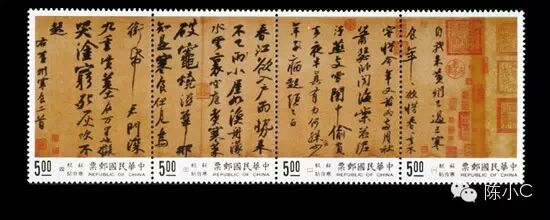 自我來黃州已過三寒
食年年欲惜春春去不
容惜今年又苦雨兩月秋
蕭瑟臥聞海棠花泥
汙燕支雪闇中偷負
去夜半真有力何殊少
年子病起頭已白
春江欲入戶雨勢來
不已雨小屋如漁舟濛
濛水雲裏空庖煮寒菜
破竈燒濕葦那
知是寒食但見烏
銜帋君門深
九重墳墓在万里也擬
哭塗窮死灰吹不
起
右黃州寒食二首
中華民國郵票
REPUBLIC OF CHINA
5.00
中華民國郵票
REPUBLIC OF CHINA
5.00
中華民國郵票
REPUBLIC OF CHINA
5.00
中華民國郵票
REPUBLIC OF CHINA
5.00
陈小C